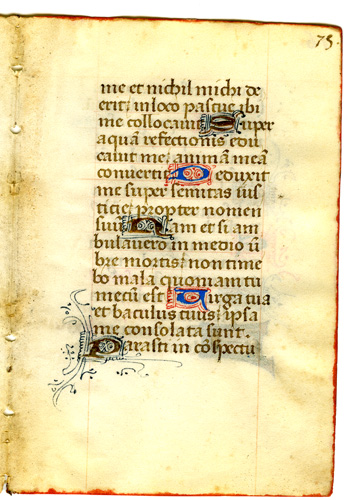 75
me et nichil michi de
erit: in loco pascue ibi
me collocavit Super
aquã refectionis edu
cavit me: animã meã
convertit Deduxit
me super semitas ius
ticie: propter nomen
suũ Nam et si am
bulavero in medio ũ
bre mortis: non time
bo mala quoniam tu
mecũ est Virga tua
et baculus tuus: ipsa
me consolata sunt.
Parasti in cõspectu